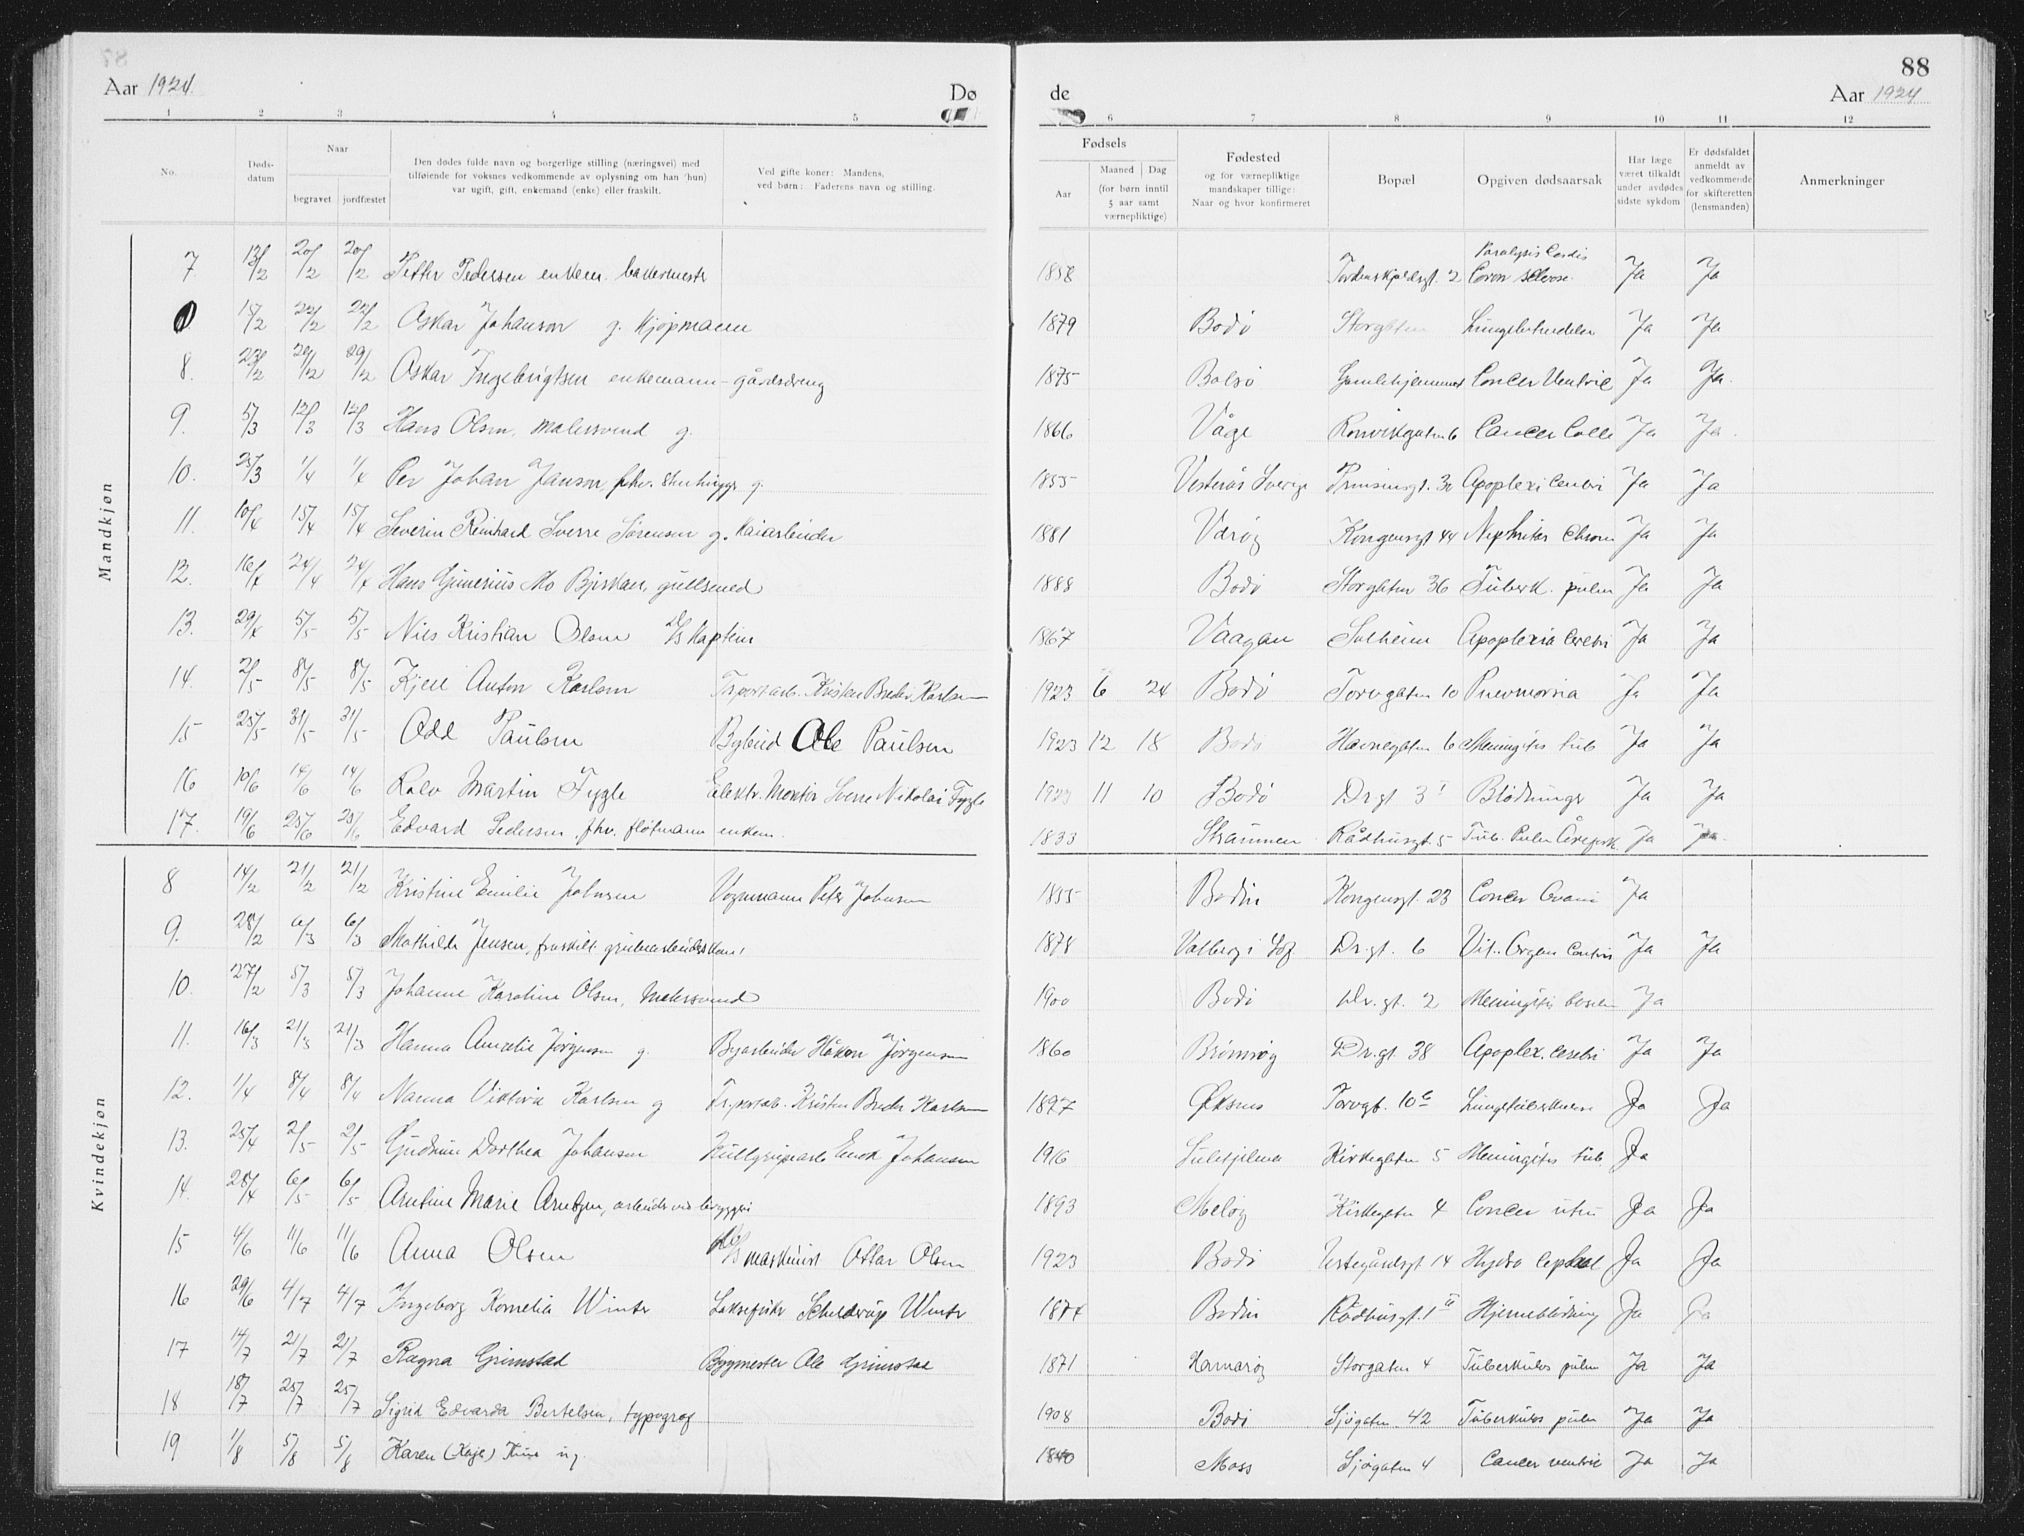 88
Aar 1924. Dø de Aar 1924
1 2 3 4 5 6 7 8 9 10 11 12
No. Døds-datum Naar begravet jordfæstet
Den dødes fulde navn og borgerlige stilling (næringsvei) med
tilføiende for voksnes vedkommende av oplysning om han (hun)
var ugift, gift, enkemand (enke) eller fraskilt.
Ved gifte koner: Mandens,
ved børn: Faderens navn og stilling.
Fødsels
Aar Maaned Dag
(for børn inntil
5 aar samt
værnepliktige)
Fødested
og for værnepliktige
mandskaper tillige:
Naar og hvor konfirmeret
Bopæl
Opgiven dødsaarsak
Har læge
været tilkaldt
under avdødes
sidste sykdom
Er dødsfaldet
anmeldt av
vedkommende
for skifteretten
(lensmanden)
Anmerkninger
Mandkjøn
7 13/2 20/2 20/2 Petter Pedersen enkem. bakermestr 1858 Tordenskjoldsgt. 2 Paralysis Cordis Coron sclerose. Ja Ja
15/2 22/2 22/2 Oskar Johanson g. Kjøpmann 1879 Bodø Storgaten Ja Ja
8. 23/2 29/2 29/2 Oskar Ingebrigtsen enkemann - gårdsdreng 1875 Bolsø Gamlehjemmet Cancer Ventric Ja Ja.
9. 5/3 12/3 12/3 Hans Olsen, malersvend g. 1866 Våge Rønvikgaten 6 Cancer Colli Ja Ja.
10. 25/3 1/4 1/4 Per Johan Janson, fhv. stenhugger g. 1855 Vesterås Sverige Prinsensgt. 30 Apoplexi Cerebri Ja Ja
11. 10/4 15/4 15/4 Severin Reinhard Sverre Sørensen g. Kaiarbeider 1881 Værøy Kongensgt 44 Nephritis Chron Ja Ja
12. 16/4 24/4 24/4 Hans Gunerius Mo gullsmed 1888 Bodø Storgaten 36 Tuberk. pulm Ja Ja
13. 29/4 5/5 5/5 Nils Kristian Olsen D/S Kaptein 1867 Vaagan Solheim Apoplexia Cerebri Ja Ja
14. 2/5 8/5 8/5 Kjell Anton Karlsen Trsportarb. Kristen Breder Karlsen 1923 6 24 Bodø Torvgaten 10 Pnevmonia Ja Ja
15 25/5 31/5 31/5 Odd Paulsen Bybud Ole Paulsen 1923 12 18 Bodø Havnegaten 6 Meningitis tub Ja Ja
16 10/6 14/6 14/6 Rolv Martin Fygle Elektr. Montør Sverre Nikolai Fygle 1923 11 10 Bodø Dr.gt 3 I Blødninger Ja Ja
17. 19/6 25/6 25/6 Edvard Pedersen, fhv. fløtmann enkem. 1833 Straumen Rådhusgt. 5 Tub. Pulm Ja Ja.
Kvindekjøn
8 14/2 21/2 21/2 Kristine Emilie Johnsen Vognmann Peter Johnsen 1855 Bodin Kongensgt. 23 Cancer Ovarii Ja
9. 28/2 6/3 6/3 Mathilde Jensen, fraskilt grubearbeiderskone 1878 Valberg i Lof Dr.gt. 6 Vit. Organ Cordis Ja Ja
10. 27/2 5/3 5/3 Johanne Karoline Olsen, Malersvend 1900 Bodø Dr.gt. 2 Ja
11. 16/3 21/3 21/3 Hanna Amalie Jørgensen g. Byarbeider Håkon Jørgensen 1860 Brønnøy Dr.gt. 38 Apoplex. Cerebri Ja Ja
12. 1/4 8/4 8/4 Nanna Viktoria Karlsen g Tr.portarb. Kristen Breder Karlsen 1897 Øksnes Torvgt. 10 Lungetuberkulose Ja Ja
13. 25/4 2/5 2/5 Gudrun Dorthea Johansen Johansen 1916 Sulitjelma Kirkegaten 5 Meningitis tub. Ja
14. 28/4 6/5 6/5 Arntine Marie Arntzen, arbeider ved bryggeri 1893 Meløy Kirkegaten 4 Cancer uteri Ja Ja
15 4/6 11/6 11/6 Anna Olsen D/S maskinist Ottar Olsen 1923 Bodø 14 Hydro cephal Ja Ja
16 29/6 4/7 4/7 Ingeborg Kornelia Winter Laksefisker Schelderup Winter 1874 Bodin Rådhusgt. 1 II Hjerneblødning Ja Ja
17 14/7 21/7 21/7 Ragna Grimstad Bygmester Ole Grimstad 1871 Hamarøy Storgaten 4 Tuberkulos pulm Ja Ja
18 18/7 25/7 25/7 Sigrid Edvarda Bertelsen, typograf 1908 Bodø Sjøgaten 42 Tuberkulos pulm Ja Ja
19 1/8 5/8 5/8 Karen (Kaja) ug. 1840 Moss Sjøgaten 4 Cancer ventric Ja Ja